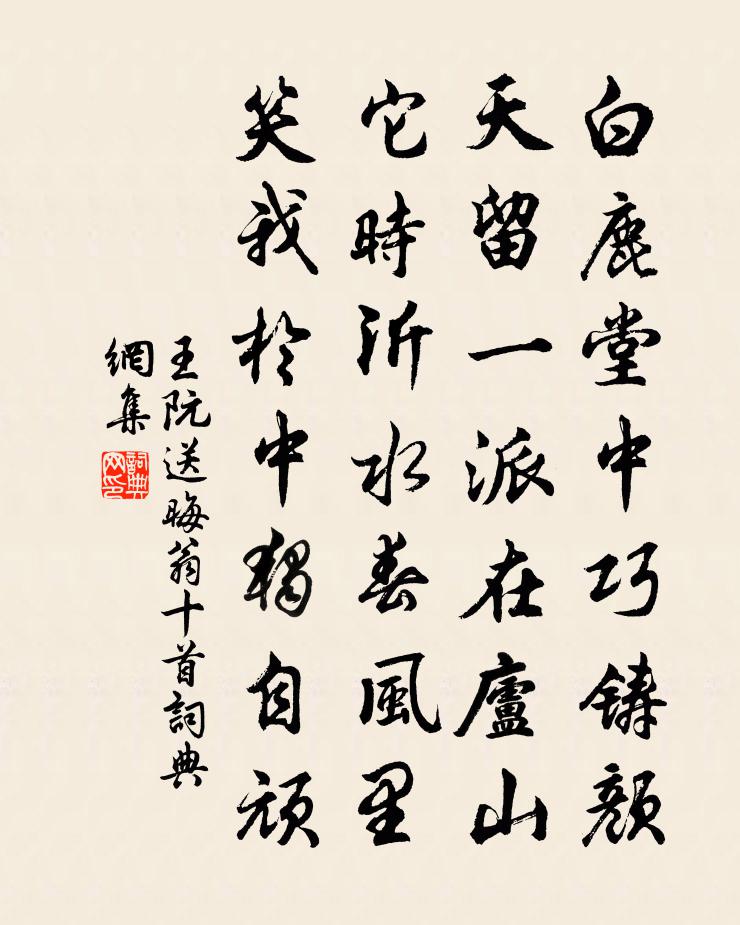 白鹿堂中巧鑄顏
天留一派在廬山
它時沂水春風里
笑我於中獨自頑
王阮送晦翁十首詞典
網集
詞典
网印